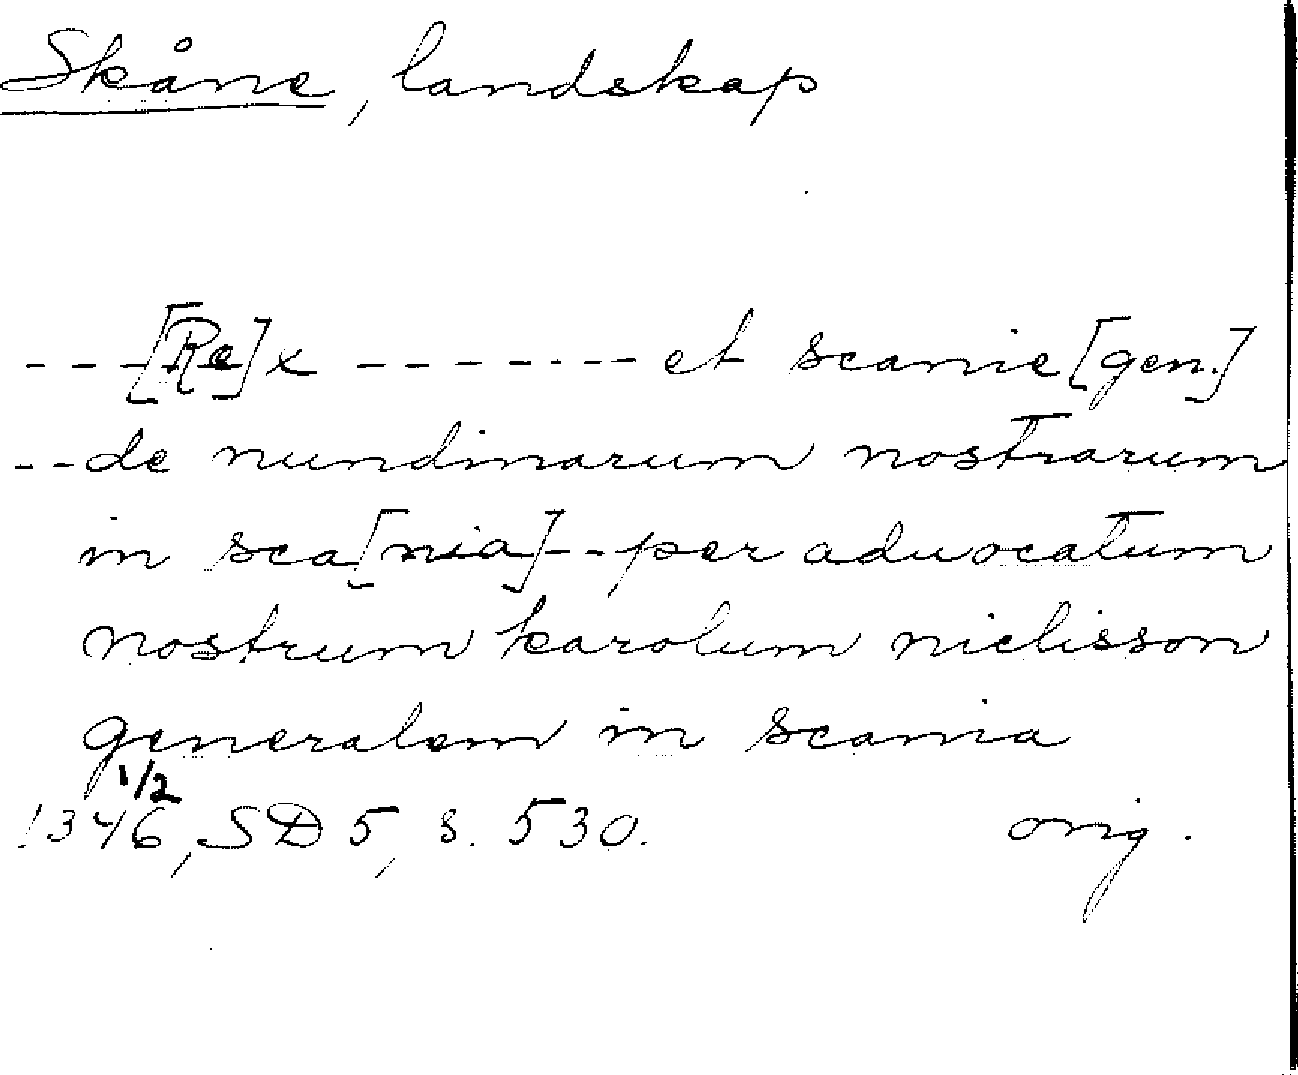 Skåne, landskap
---[Re]x ------- et scanie [gen.]
--de nundinarum nostrarum
in sca[nia]--per aduocatum
nostrum karolum nielisson
generalem in scania
1/2
1346, SD 5, s. 530. orig.